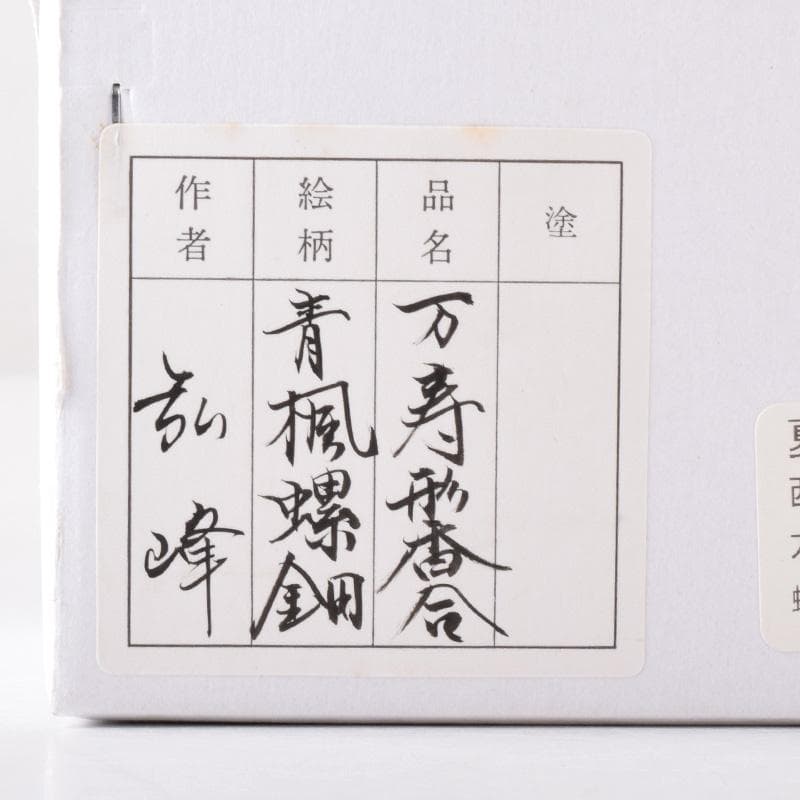 塗
品名
万寿形香合
絵柄
青楓螺鈿
作者
弘峰